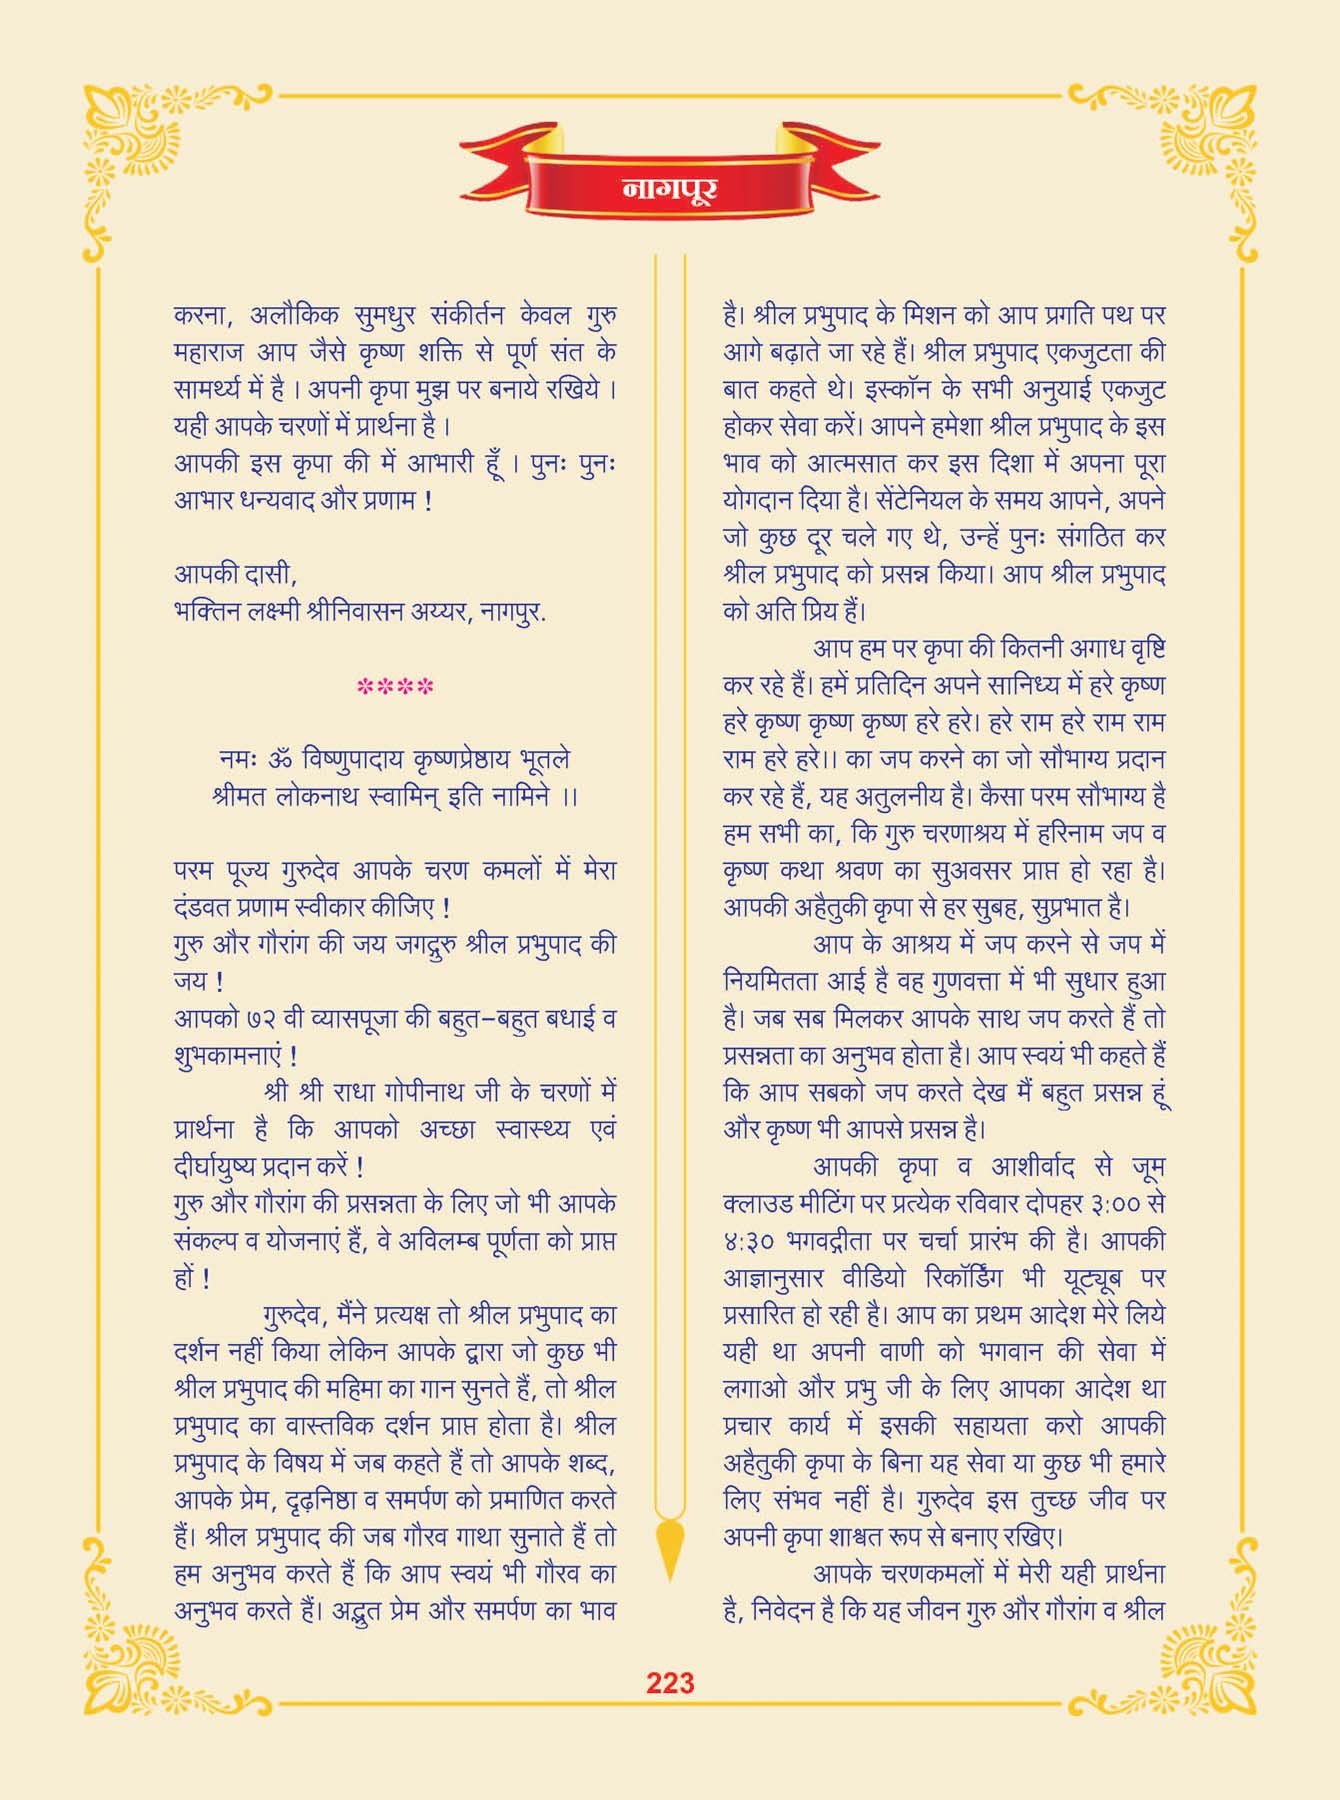 नागपूर
करना, अलौकिक सुमधुर संकीर्तन केवल गुरु
महाराज आप जैसे कृष्ण शक्ति से पूर्ण संत के
सामर्थ्य में है । अपनी कृपा मुझ पर बनाये रखिये ।
यही आपके चरणों में प्रार्थना है ।
आपकी इस कृपा की में आभारी हूँ । पुनः पुनः
आभार धन्यवाद और प्रणाम !
आपकी दासी,
भक्तिन लक्ष्मी श्रीनिवासन अय्यर, नागपुर.
****
नमः ॐ विष्णुपादाय कृष्णप्रेष्ठाय भूतले
श्रीमत लोकनाथ स्वामिन् इति नामिने ।।
परम पूज्य गुरुदेव आपके चरण कमलों में मेरा
दंडवत प्रणाम स्वीकार कीजिए !
गुरु और गौरांग की जय जगद्गुरु श्रील प्रभुपाद की
जय !
आपको ७२ वी व्यासपूजा की बहुत-बहुत बधाई व
शुभकामनाएं !
श्री श्री राधा गोपीनाथ जी के चरणों में
प्रार्थना है कि आपको अच्छा स्वास्थ्य एवं
दीर्घायुष्य प्रदान करें !
गुरु और गौरांग की प्रसन्नता के लिए जो भी आपके
संकल्प व योजनाएं हैं, वे अविलम्ब पूर्णता को प्राप्त
हों !
गुरुदेव, मैंने प्रत्यक्ष तो श्रील प्रभुपाद का
दर्शन नहीं किया लेकिन आपके द्वारा जो कुछ भी
श्रील प्रभुपाद की महिमा का गान सुनते हैं, तो श्रील
प्रभुपाद का वास्तविक दर्शन प्राप्त होता है। श्रील
प्रभुपाद के विषय में जब कहते हैं तो आपके शब्द,
आपके प्रेम, दृढ़निष्ठा व समर्पण को प्रमाणित करते
हैं। श्रील प्रभुपाद की जब गौरव गाथा सुनाते हैं तो
हम अनुभव करते हैं कि आप स्वयं भी गौरव का
अनुभव करते हैं। अद्भुत प्रेम और समर्पण का भाव
है। श्रील प्रभुपाद के मिशन को आप प्रगति पथ पर
आगे बढ़ाते जा रहे हैं। श्रील प्रभुपाद एकजुटता की
बात कहते थे। इस्कॉन के सभी अनुयाई एकजुट
होकर सेवा करें। आपने हमेशा श्रील प्रभुपाद के इस
भाव को आत्मसात कर इस दिशा में अपना पूरा
योगदान दिया है। सेंटेनियल के समय आपने, अपने
जो कुछ दूर चले गए थे, उन्हें पुनः संगठित कर
श्रील प्रभुपाद को प्रसन्न किया। आप श्रील प्रभुपाद
को अति प्रिय हैं।
आप हम पर कृपा की कितनी अगाध वृष्टि
कर रहे हैं। हमें प्रतिदिन अपने सानिध्य में हरे कृष्ण
हरे कृष्ण कृष्ण कृष्ण हरे हरे। हरे राम हरे राम राम
राम हरे हरे।। का जप करने का जो सौभाग्य प्रदान
कर रहे हैं, यह अतुलनीय है। कैसा परम सौभाग्य है
हम सभी का, कि गुरु चरणाश्रय में हरिनाम जप व
कृष्ण कथा श्रवण का सुअवसर प्राप्त हो रहा है।
आपकी अहैतुकी कृपा से हर सुबह, सुप्रभात है।
आप के आश्रय में जप करने से जप में
नियमितता आई है वह गुणवत्ता में भी सुधार हुआ
है। जब सब मिलकर आपके साथ जप करते हैं तो
प्रसन्नता का अनुभव होता है। आप स्वयं भी कहते हैं
कि आप सबको जप करते देख मैं बहुत प्रसन्न हूं
और कृष्ण भी आपसे प्रसन्न है।
आपकी कृपा व आशीर्वाद से जूम
क्लाउड मीटिंग पर प्रत्येक रविवार दोपहर ३:०० से
४:३० भगवद्गीता पर चर्चा प्रारंभ की है। आपकी
आज्ञानुसार वीडियो रिकॉर्डिंग भी यूट्यूब पर
प्रसारित हो रही है। आप का प्रथम आदेश मेरे लिये
यही था अपनी वाणी को भगवान की सेवा में
लगाओ और प्रभु जी के लिए आपका आदेश था
प्रचार कार्य में इसकी सहायता करो आपकी
अहैतुकी कृपा के बिना यह सेवा या कुछ भी हमारे
लिए संभव नहीं है। गुरुदेव इस तुच्छ जीव पर
अपनी कृपा शाश्वत रूप से बनाए रखिए।
आपके चरणकमलों में मेरी यही प्रार्थना
है, निवेदन है कि यह जीवन गुरु और गौरांग व श्रील
223